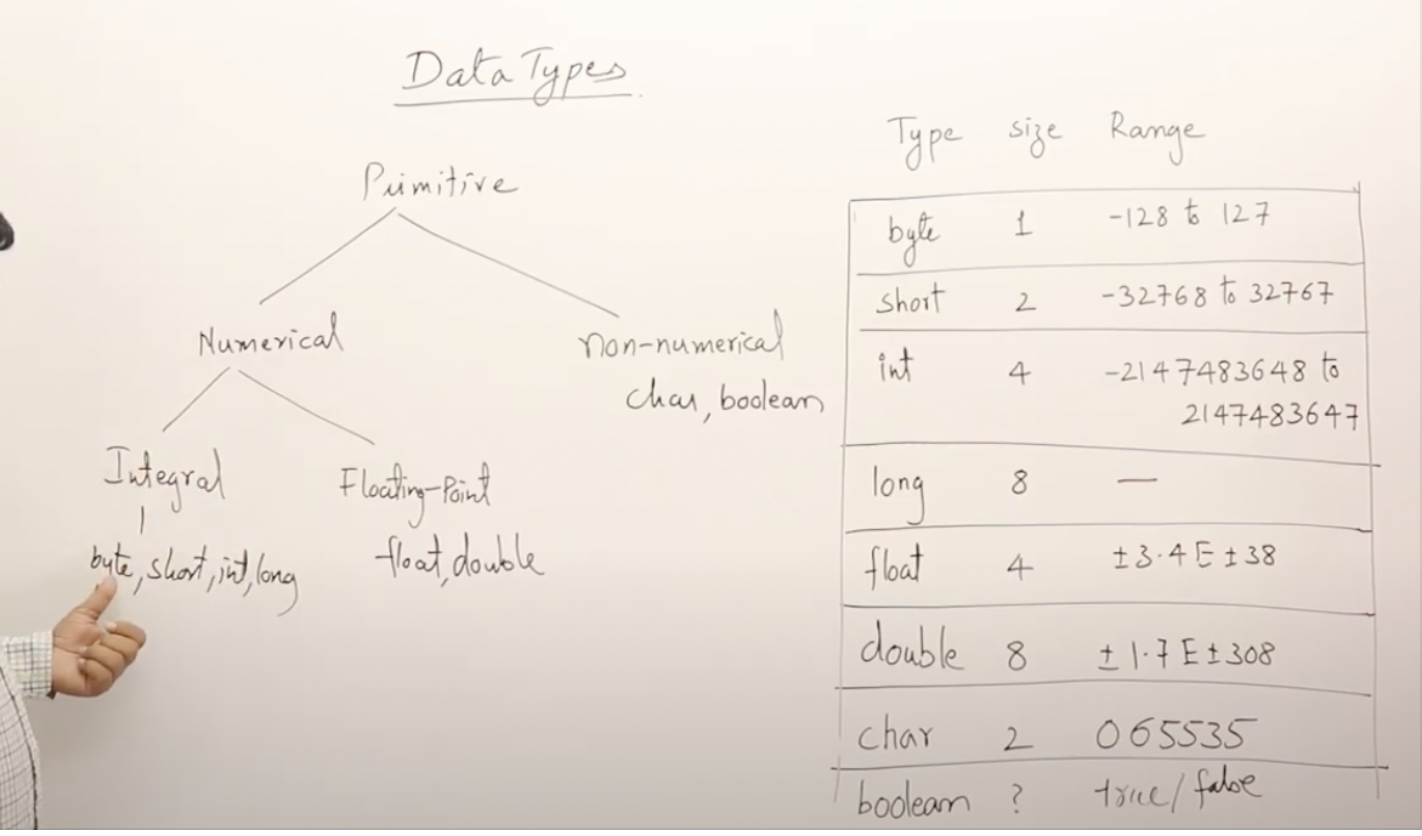 Data Types
Primitive
Numerical
Non-numerical
char, boolean
Integral
Floating-Point
byte, short, int, long
float, double
Type size Range
byte 1 -128 to 127
short 2 -32768 to 32767
int 4 -2147483648 to
2147483647
long 8 —
float 4 ±3.4E±38
double 8 ±1.7E±308
char 2 065535
boolean ? true/false